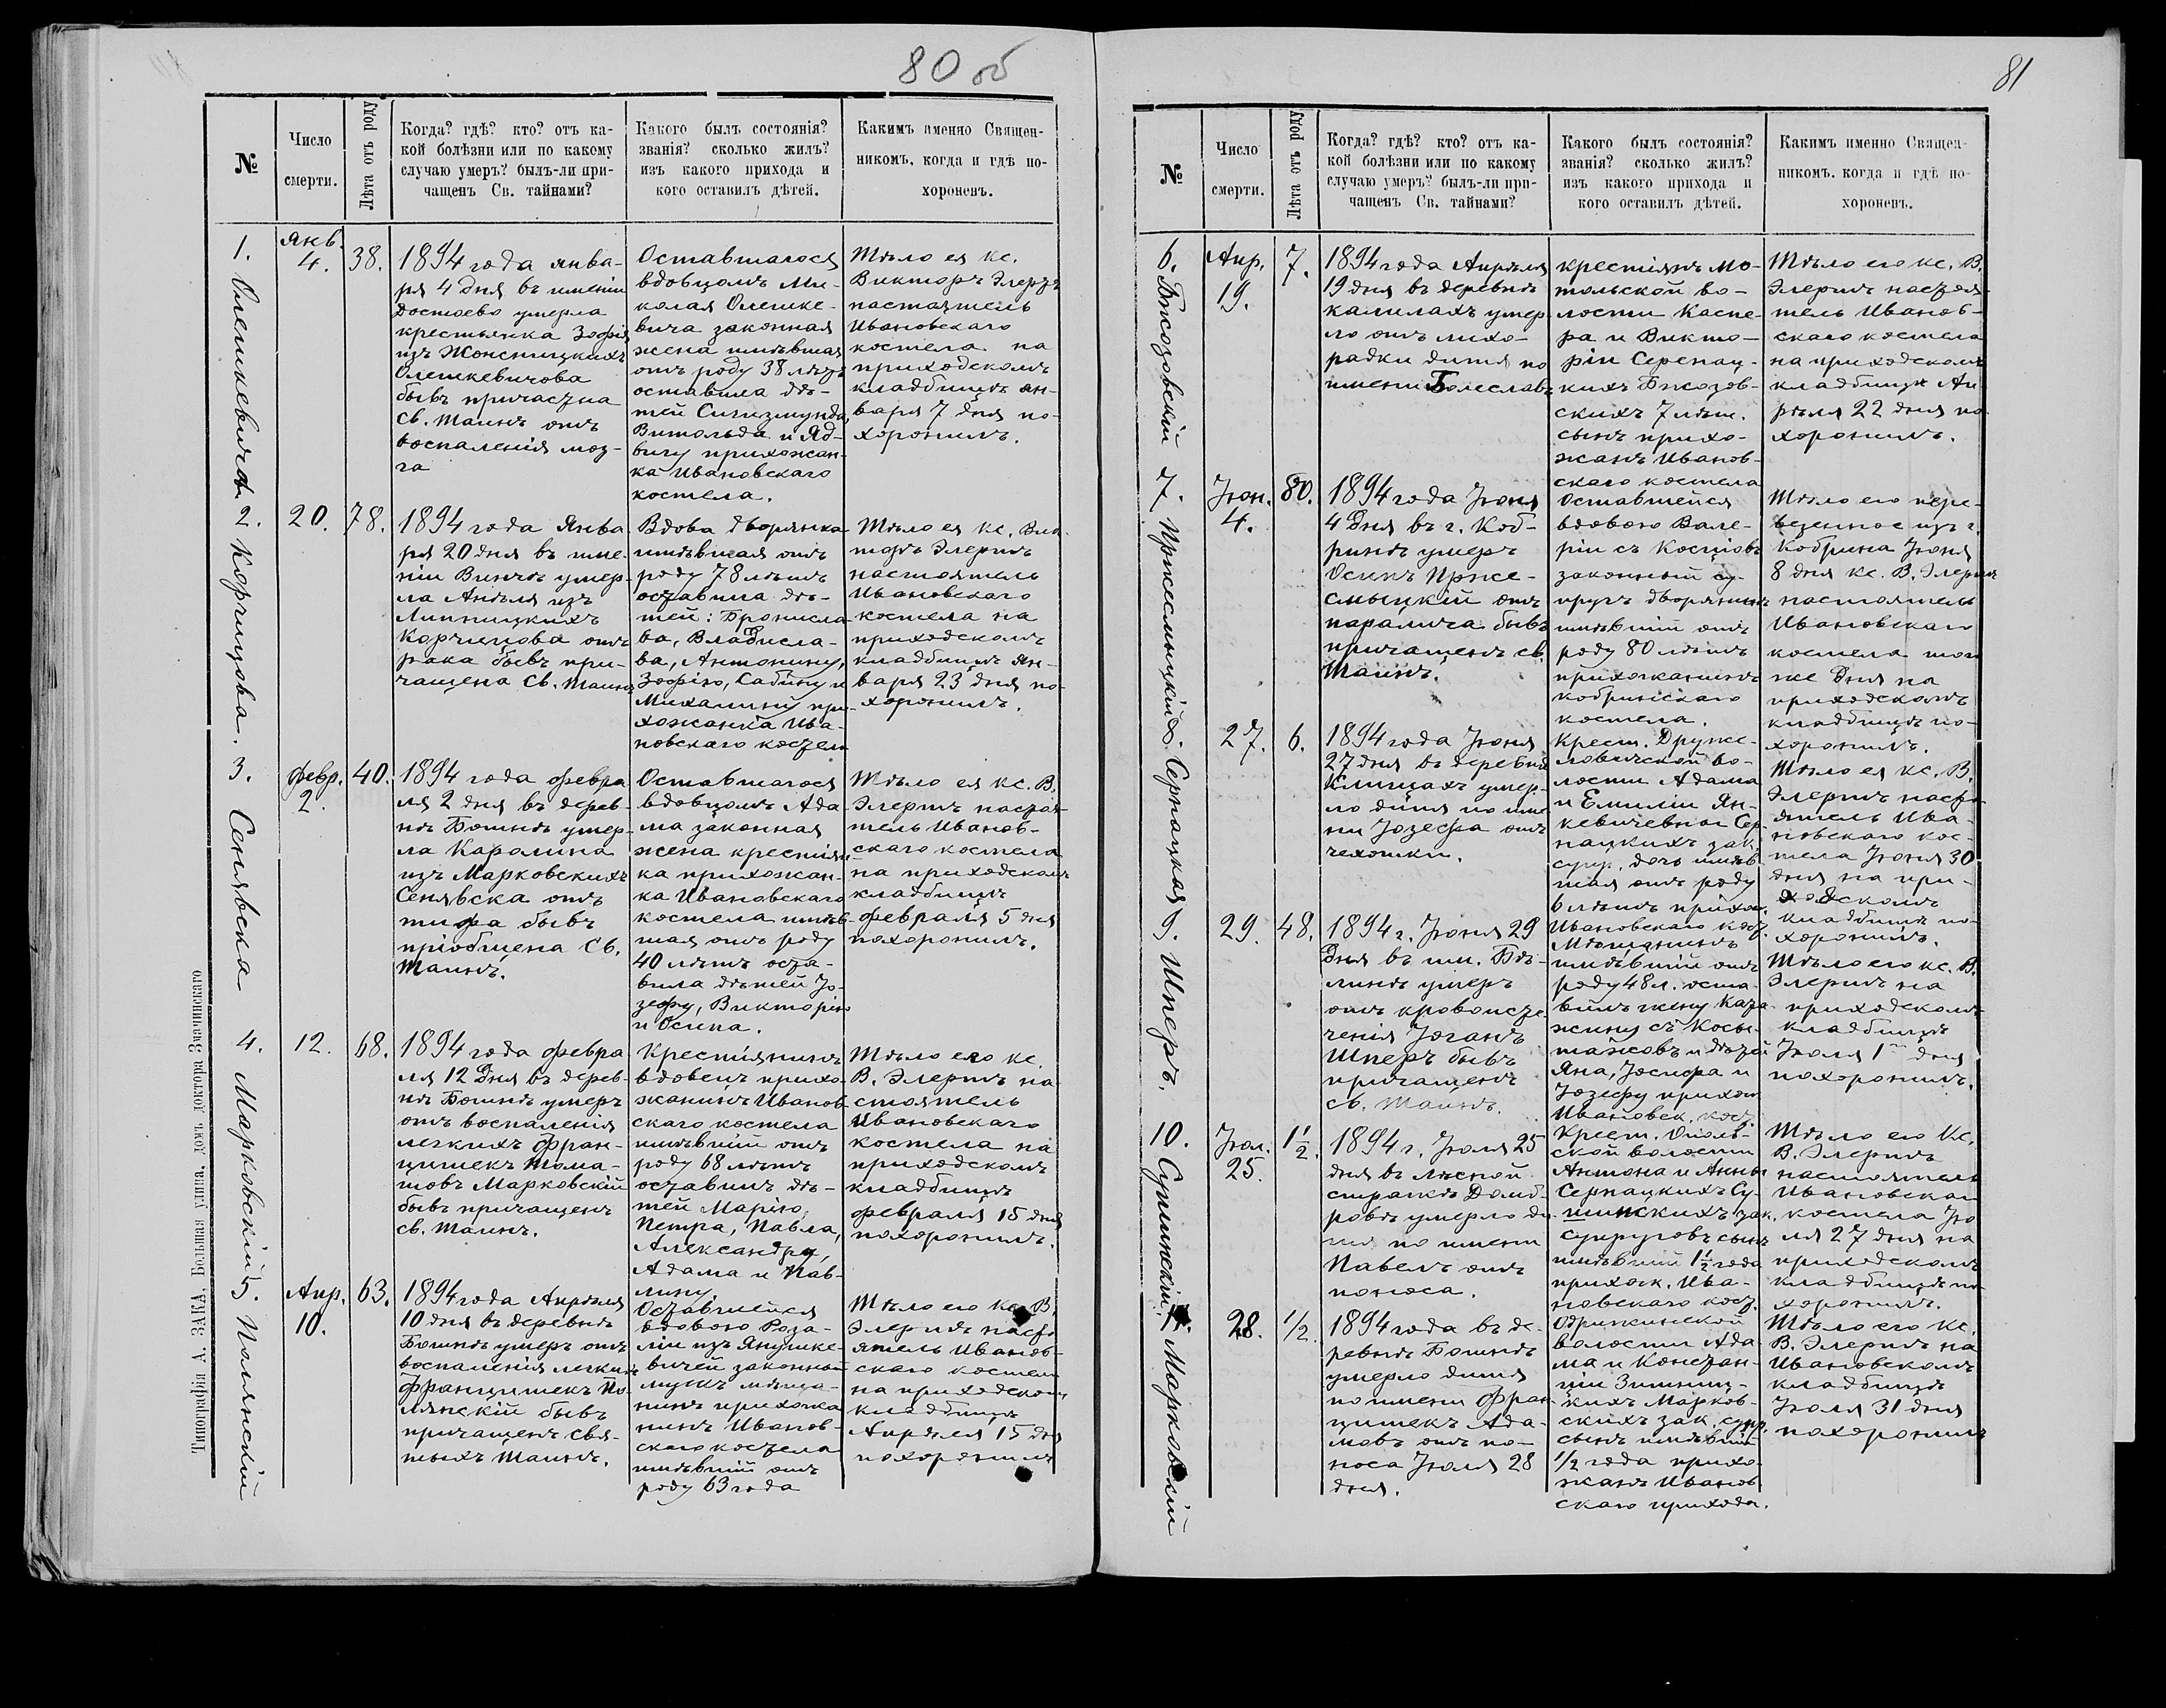 80 об
№
Число
смерти.
Лѣта отъ роду
Когда? гдѣ? кто? отъ ка-
кой болѣзни или по какому
случаю умеръ? былъ-ли при-
чащенъ Св. тайнами?
Какого былъ состоянія?
званія? сколько жилъ?
изъ какого прихода и
кого оставилъ дѣтей.
Какимъ именно Священ-
никомъ, когда и гдѣ по-
хороненъ.
1. Олешкевичова
Янв.
4.
38.
1894 года янва-
ря 4 дня въ имѣніи
Достоево умерла
крестьянка Зофія
изъ Жонстицкихъ
Олешкевичова
бывъ причастна
Св. Таинъ отъ
воспаленія моз-
га
Оставшагося
вдовцомъ Ми-
колая Олешке-
вича законная
жена имѣвшая
отъ роду 38 лѣтъ
оставила дѣ-
тей Сигизмунда,
Витольда и Яд-
вигу прихожан-
ка Ивановскаго
костела.
Тѣло ея кс.
Викторъ Элертъ
настоятель
Ивановскаго
костела на
приходскомъ
кладбищѣ ян-
варя 7 дня по-
хоронилъ.
2. Корчицова.
20.
78.
1894 года Янва
ря 20 дня въ име-
ніи Винчѣ умер-
ла Анѣля изъ
Липницкихъ
Корчицова отъ
рака бывъ при-
чащена Св. Таинъ
Вдова дворянка
имѣвшая отъ
роду 78 лѣтъ
оставила дѣ-
тей: Бронисла
ва, Владисла-
ва, Антонину,
Зофію, Сабину и
Михалину при-
хожанка Ива-
новскаго костела
Тѣло ея кс. Вик-
торъ Элертъ
настоятель
Ивановскаго
костела на
приходскомъ
кладбищѣ Ян-
варя 23 дня по-
хоронилъ.
3. Сенявска
Февр.
2.
40.
1894 года февра
ля 2 дня въ дерев-
нѣ Божинѣ умер-
ла Каролина
изъ Марковскихъ
Сенявска отъ
тифа бывъ
пріобщена Св.
Таинъ.
Оставшагося
вдовцомъ Ада-
ма законная
жена крестьян-
ка прихожан-
ка Ивановскаго
костела имѣв-
шая отъ роду
40 лѣтъ оста-
вила дѣтей Іо-
зефу, Викторію
и Осипа.
Тѣло ея кс. В.
Элертъ настоя-
тель Иванов-
скаго костела
на приходскомъ
кладбищѣ
февраля 5 дня
похоронилъ.
4. Марковскій
12.
68.
1894 года февра
ля 12 дня въ дерев-
нѣ Божинѣ умеръ
отъ воспаленія
легкихъ Фран-
цишекъ Тома-
шовъ Марковскій
бывъ причащенъ
св. Таинъ.
Крестьянинъ
вдовецъ прихо-
жанинъ Иванов
скаго костела
имѣвшій отъ
роду 68 лѣтъ
оставилъ дѣ-
тей Марію,
Петра, Павла,
Александру,
Адама и Пав-
лину.
Тѣло его кс.
В. Элертъ на-
стоятель
Ивановскаго
костела на
приходскомъ
кладбищѣ
февраля 15 дня
похоронилъ.
5. Полянскій
Апр.
10.
63.
1894 года Апрѣля
10 дня въ деревнѣ
Божинѣ умеръ отъ
воспаленія легкихъ
Францишекъ По-
лянскій бывъ
причащенъ свя-
тыхъ Таинъ.
Оставшейся
вдовою Роза-
ліи изъ Янушке-
вичей законный
мужъ мѣща-
нинъ прихожа
нинъ Иванов-
скаго костела
имѣвшій отъ
роду 63 года
Тѣло его кс. В.
Элертъ насто
ятель Иванов-
скаго костела
на приходскомъ
кладбищѣ
Апрѣля 15 дня
похоронилъ
Типографія А. ЗАКА, Большая улица, домъ доктора Змачинскаго
81
№
Число
смерти.
Лѣта отъ роду
Когда? гдѣ? кто? отъ ка-
кой болѣзни или по какому
случаю умеръ? былъ-ли при-
чащенъ Св. тайнами?
Какого былъ состоянія?
званія? сколько жилъ?
изъ какого прихода и
кого оставилъ дѣтей.
Какимъ именно Священ-
никомъ, когда и гдѣ по-
хороненъ.
6. Бжозовскій
Апр.
19.
7.
1894 года Апрѣля
19 дня въ деревнѣ
Калилахъ умер-
ло отъ лихо-
радки дитя по
имени Болеславъ
крестьянъ Мо-
тольской во-
лости Каспе-
ра и Викто-
ріи Сернац-
кихъ Бжозов-
скихъ 7 лѣт.
сынъ прихо-
жанъ Иванов-
скаго костела
Тѣло его кс. В.
Элертъ настоя-
тель Иванов-
скаго костела
на приходскомъ
кладбищѣ Ап
рѣля 22 дня по-
хоронилъ.
7. Пржесмыцкій
Іюн.
4.
80.
1894 года Іюня
4 дня въ г. Коб-
ринѣ умеръ
Осипъ Прже-
смыцкій отъ
паралича бывъ
причащенъ св.
Таинъ.
Оставшейся
вдовою Вале-
ріи съ Косціовъ
законный су-
пругъ дворянинъ
имѣвшій отъ
роду 80 лѣтъ
прихожанинъ
кобринскаго
костела.
Тѣло его пере-
везенное изъ г.
Кобрина Іюня
8 дня кс. В. Элертъ
настоятель
Ивановскаго
костела того
же дня на
приходскомъ
кладбищѣ по-
хоронилъ.
8. Сернацкая
27.
6.
1894 года Іюня
27 дня въ деревнѣ
Клищахъ умер-
ло дитя по име
ни Іозефа отъ
чехотки.
Крест. Друже-
ловичской во-
лости Адама
и Емиліи Ян-
кевичевной Сер-
нацкихъ зак.
супр. дочь имѣв
шая отъ роду
6 лѣтъ прихож.
Ивановскаго кост.
Тѣло ея кс. В.
Элертъ насто-
ятель Ива-
новскаго кос-
тела Іюня 30
дня на при-
ходскомъ
кладбищѣ по-
хоронилъ.
9. Шперъ.
29.
48.
1894 г. Іюня 29
дня въ им. Бѣ-
линѣ умеръ
отъ кровоисте
ченія Іоганъ
Шперъ бывъ
причащенъ
св. Таинъ.
Мѣщанинъ
имѣвшій отъ
роду 48 л. оста-
вилъ жену Каза-
жину съ Косы-
тажовъ и дѣтей
Яна, Іосифа и
Іозефу прихож
Ивановск. кост.
Тѣло его кс. В.
Элертъ на
приходскомъ
кладбищѣ
Іюля 1го дня
похоронилъ.
10. Сушинскій.
Іюл.
25.
1 1/2.
1894 г. Іюля 25
дня въ лѣсной
стражѣ Домб-
ровѣ умерло ди-
тя по имени
Павелъ отъ
поноса.
Крест. Ополь-
ской волости
Антона и Анны
Сернацкихъ Су-
шинскихъ зак.
супруговъ сынъ
имѣвшій 1 1/2 года
прихож. Ива-
новскаго кост.
Тѣло его Кс.
В. Элертъ
настоятель
Ивановскаго
костела Ію
ля 27 дня на
приходскомъ
кладбищѣ по-
хоронилъ.
Марковскій
28.
1/2.
1894 года въ де-
ревнѣ Божинѣ
умерло дитя
по имени Фран-
цишекъ Ада-
мовъ отъ по-
носа Іюля 28
дня.
Одрижинской
волости Ада-
ма и Констан-
ціи Зимниц-
кихъ Марков-
скихъ зак. супр.
сынъ имѣвшій
1/2 года прихо-
жанъ Иванов
скаго прихода.
Тѣло его кс.
В. Элертъ на
Ивановскомъ
кладбищѣ
Іюля 31 дня
похоронилъ